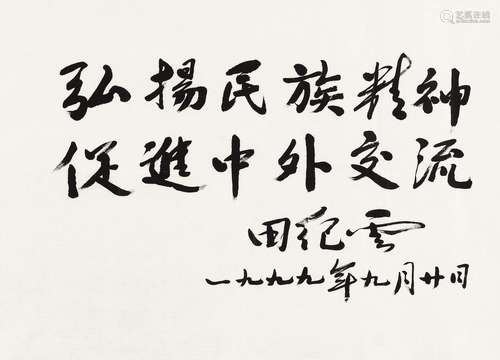 弘揚民族精神
促進中外交流
田紀雲
一九九九年九月廿日